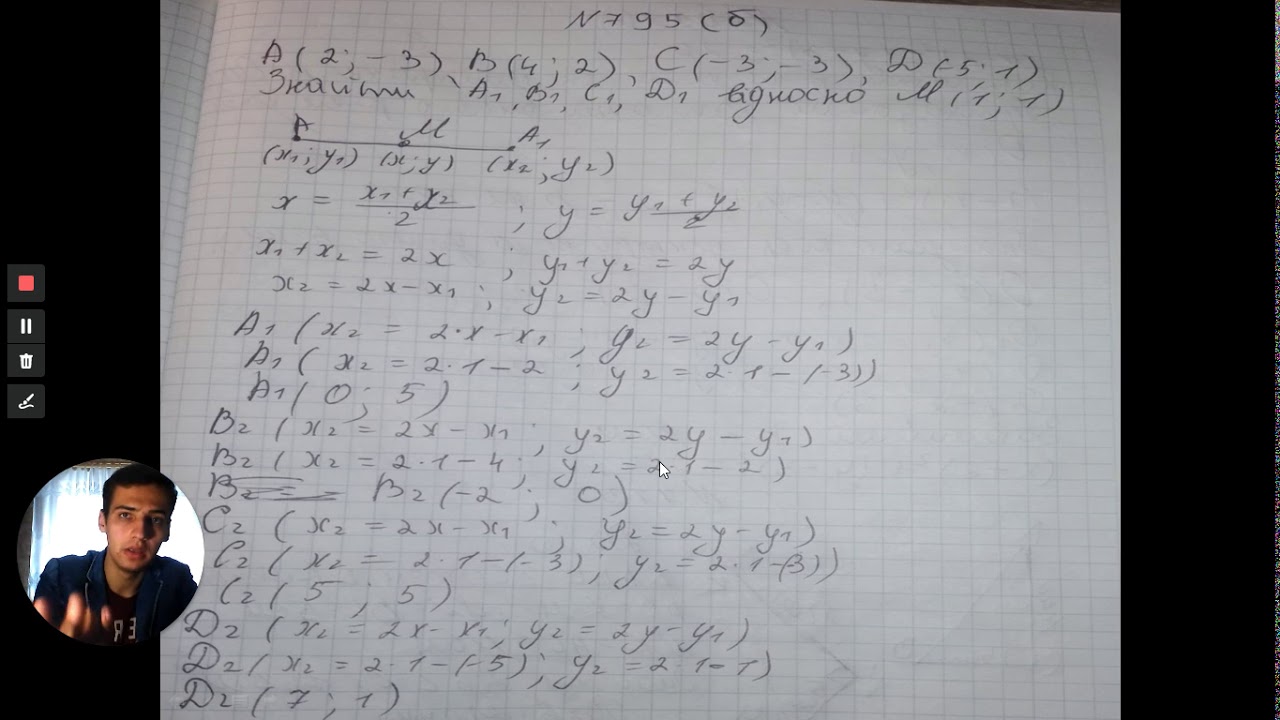 N795(б)
А(2;-3), В(4;2), С(-3;-3), D(5;1)
Знайти А₁, В₁, С₁, D₁ відносно М(1;1)
А М А₁
(x₁;y₁) (x;y) (x₂;y₂)
x = (x₁+x₂)/2 ; y = (y₁+y₂)/2
x₁+x₂ = 2x ; y₁+y₂ = 2y
x₂ = 2x-x₁ ; y₂ = 2y-y₁
А₁(x₂ = 2·x-x₁ ; y₂ = 2y-y₁)
А₁(x₂ = 2·1-2 ; y₂ = 2·1-(-3))
А₁(0; 5)
В₂(x₂ = 2x-x₁; y₂ = 2y-y₁)
В₂(x₂ = 2·1-4; y₂ = 2·1-2)
В₂(-2; 0)
С₂(x₂ = 2x-x₁; y₂=2y-y₁)
С₂(x₂ = 2·1-(-3); y₂=2·1-(3))
С₂(5; 5)
D₂(x₂ = 2x-x₁; y₂ = 2y-y₁)
D₂(x₂ = 2·1-(-5); y₂ = 2·1-1)
D₂(7; 1)